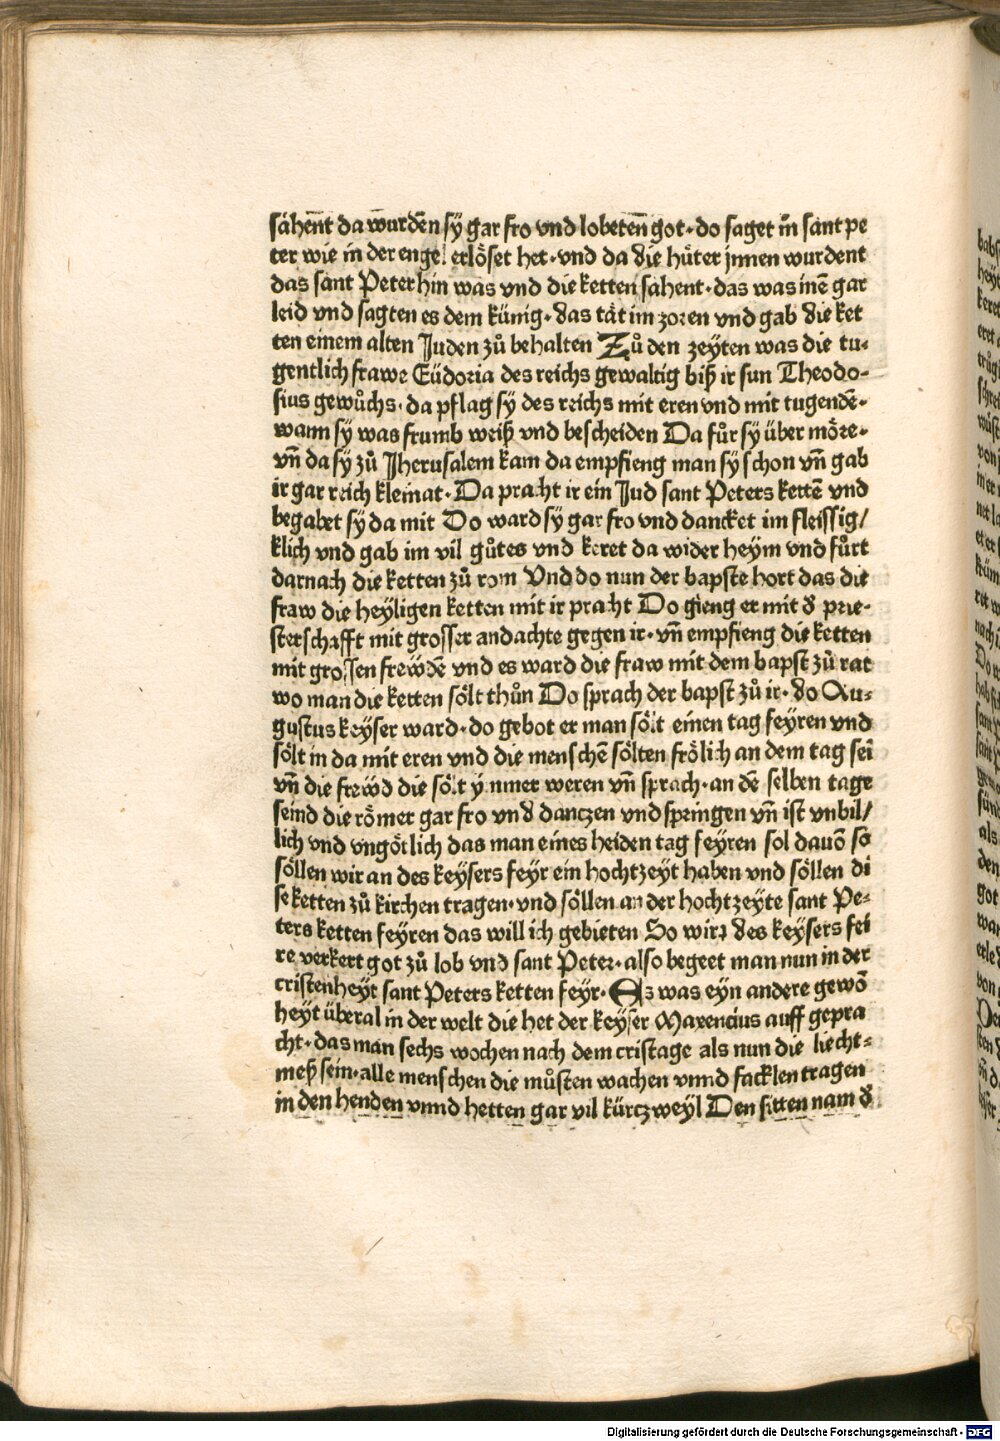 sähent da wurdēn sÿ gar fro vnd lobetēn got· do saget in̄ sant pe
ter wie in der engel erlöset het· vnd da die hüter jnnen wurdent
das sant Peter hin was vnd die ketten sahent· das was inē gar
leid vnd sagten es dem künig· das tät im zoren vnd gab die ket
ten einem alten Juden zů behalten Zů den zeÿten was die tu⸗
gentlich frawe Eüdoxia des reichs gewaltig biß ir sun Theodo⸗
sius gewůchs· da pflag sÿ des reichs mit eren vnd mit tugendē·
wann sÿ was frumb weiß vnd bescheiden Da fůr sÿ über möre·
vn̄ da sÿ zů Jherusalem kam da empfieng man sÿ schon vn̄ gab
ir gar reich kleinat· Da pracht ir ein Jud sant Peters kettē vnd
begabet sÿ da mit Do ward sÿ gar fro vnd dancket im fleissig/
klich vnd gab im vil gůtes vnd keret da wider heÿm vnd fůrt
darnach die ketten zů rom Vnd do nun der bapste hort das die
fraw die heÿligen ketten mit ir pracht Do gieng er mit d̕ prie⸗
sterschafft mit grosser andachte gegen ir· vn̄ empfieng die ketten
mit grossen frewdē vnd es ward die fraw mit dem bapst zů rat
wo man die ketten sölt thůn Do sprach der bapst zů ir· do Au⸗
gustus keÿser ward· do gebot er man sölt einen tag feÿren vnd
sölt in da mit eren vnd die menschē sölten frölich an dem tag sei
vn̄ die frewd die sölt ÿmmer weren vn̄ sprach· an dē selben tage
seind die römer gar fro vnd danczen vnd springen vn̄ ist vnbil/
lich vnd vngötlich das man eines heiden tag feÿren sol dauō so
söllen wir an des keÿsers feÿr ein hochtzeÿt haben vnd söllen di
se ketten zů kirchen tragen· vnd söllen an der hochtzeÿte sant Pe⸗
ters ketten feÿren das will ich gebieten So wirt des keÿsers fei
re verkert got zů lob vnd sant Peter· also begeet man nun in der
cristenheÿt sant Peters ketten feÿr· Es was eÿn andere gewō
heÿt überal in der welt die het der keÿser Maxencius auff gepra
cht· das man sechs wochen nach dem cristage als nun die liecht⸗
meß sein· alle menschen die můsten wachen vnnd facklen tragen
in den henden vnnd hetten gar vil kürczweÿl Den sitten nam d̕
Digitalisierung gefördert durch die Deutsche Forschungsgemeinschaft - DFG